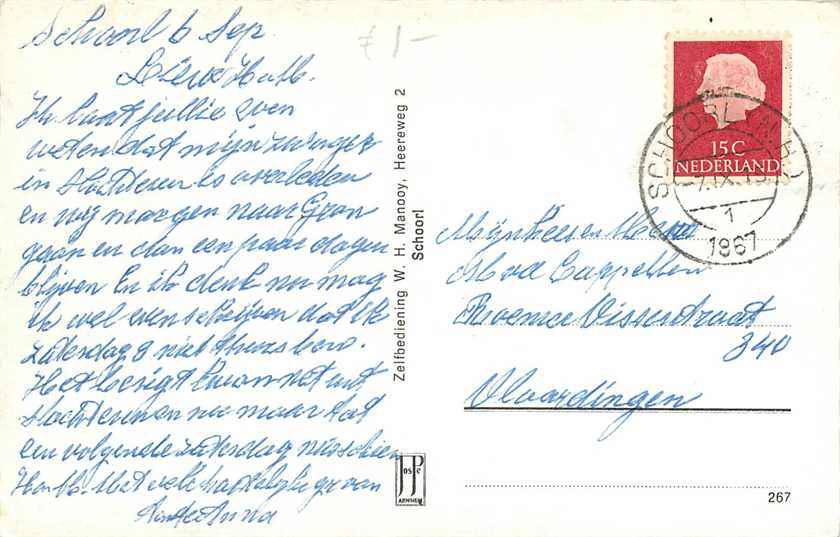 Schoorl 6 Sep.
Lieve Hub.
Ik laat jullie even
weten dat mijn zwager
in Slochteren is overleden
en wij morgen naar Gron
gaan en dan een paar dagen
blijven En ik denk nu mag
ik wel even schrijven dat ik
Zaterdag 9 niet thuis ben.
Het bericht kwam net uit
Slochteren en nu maar tot
een volgende Zaterdag misschien
Met vele hartelijke gr van
Tante Anna
£ 1-
Zelfbediening W. H. Manooy, Heereweg 2
Schoorl
JosPé
ARNHEM
15C
NEDERLAND
SCHOORL (N.H.)
-7.IX.
1
1967
Mijnheer en Mevr
M v d Cappellen
Roemer Visserstraat
340
Vlaardingen
267